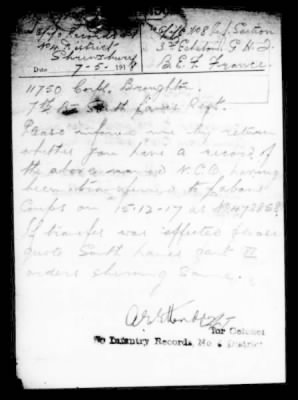 Records
No 4 District
Shrewsbury
Date 7-5-1918
No 8 Inf. Section
3rd Echelon G.H.Q.
B.E.F. France.
11750 Corpl. Broughton.
7th Bn South Lancs Regt.
Please inform me by return
whether you have a record of
the above named N.C.O. having
been transferred to Labour
Corps on 15-12-17 as No
If transfer was effected please
quote South Lancs part II
orders showing same.
for Colonel
i/c Infantry Records, No 4 District